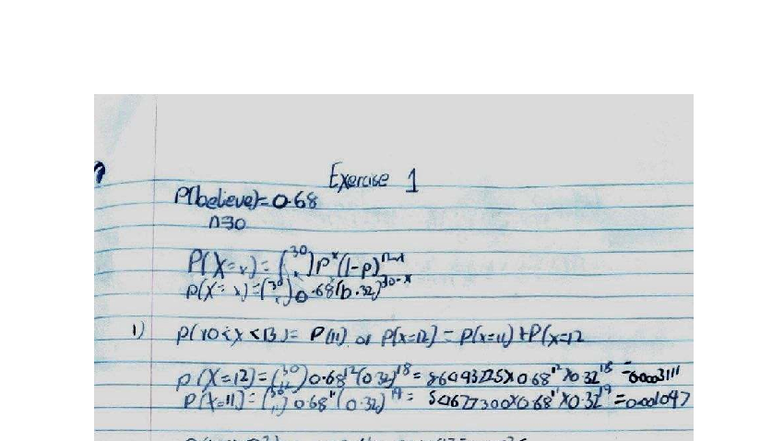 Exercise 1
P(believe)=0.68
n=30
P(X=x)=(30 x)p^x(1-p)^n-x
P(X=x)=(30 x)0.68^x(0.32)^30-x
1) P(10<x<13)= P(11) or P(x=12) = P(x=11)+P(x=12
P(X=12)=(30 12)0.68^12(0.32)^18 = 86493225×0.68^12×0.32^18=0.003111
P(X=11)=(30 11)0.68^11(0.32)^19= 54627300×0.68^11×0.32^19=0.001047